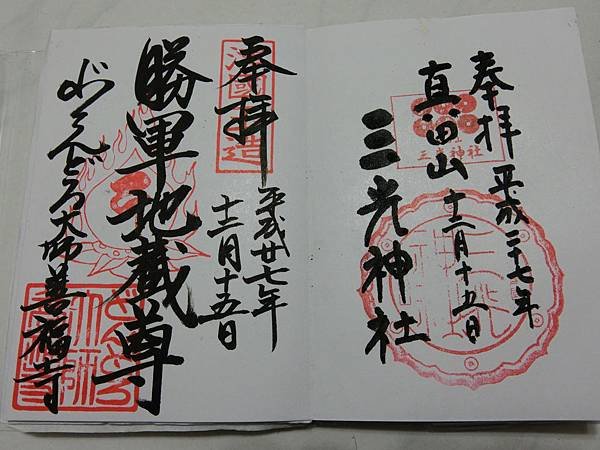 奉拝 平成二十七年
真田山 十二月十五日
三光神社
三光神社
奉拝 平成廿七年
十二月十五日
勝軍地蔵尊
どんどろ大師善福寺